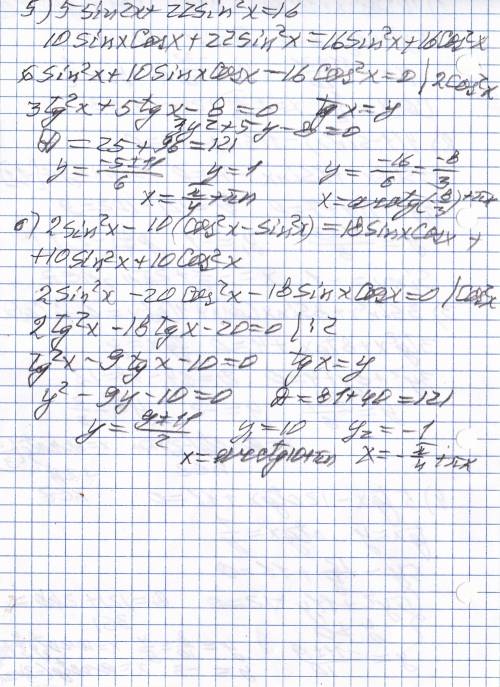 5) 5Sin2x + 22Sin²x = 16
10SinxCosx + 22Sin²x = 16Sin²x + 16Cos²x
6Sin²x + 10SinxCosx - 16Cos²x = 0 | 2Cos²x
3tg²x + 5tgx - 8 = 0 tgx = y
3y² + 5y - 8 = 0
D = 25 + 96 = 121
y = (-5 ± 11)/6 y = 1 y = -16/6 = -8/3
x = π/4 + πn x = arctg(-8/3) + πn
6) 2Sin²x - 10(Cos²x - Sin²x) = 18SinxCosx +
+ 10Sin²x + 10Cos²x
2Sin²x - 20Cos²x - 18SinxCosx = 0 | Cos²x
2tg²x - 18tgx - 20 = 0 | :2
tg²x - 9tgx - 10 = 0 tgx = y
y² - 9y - 10 = 0 D = 81 + 40 = 121
y = (9 ± 11)/2 y₁ = 10 y₂ = -1
x = arctg10 + πn x = -π/4 + πx